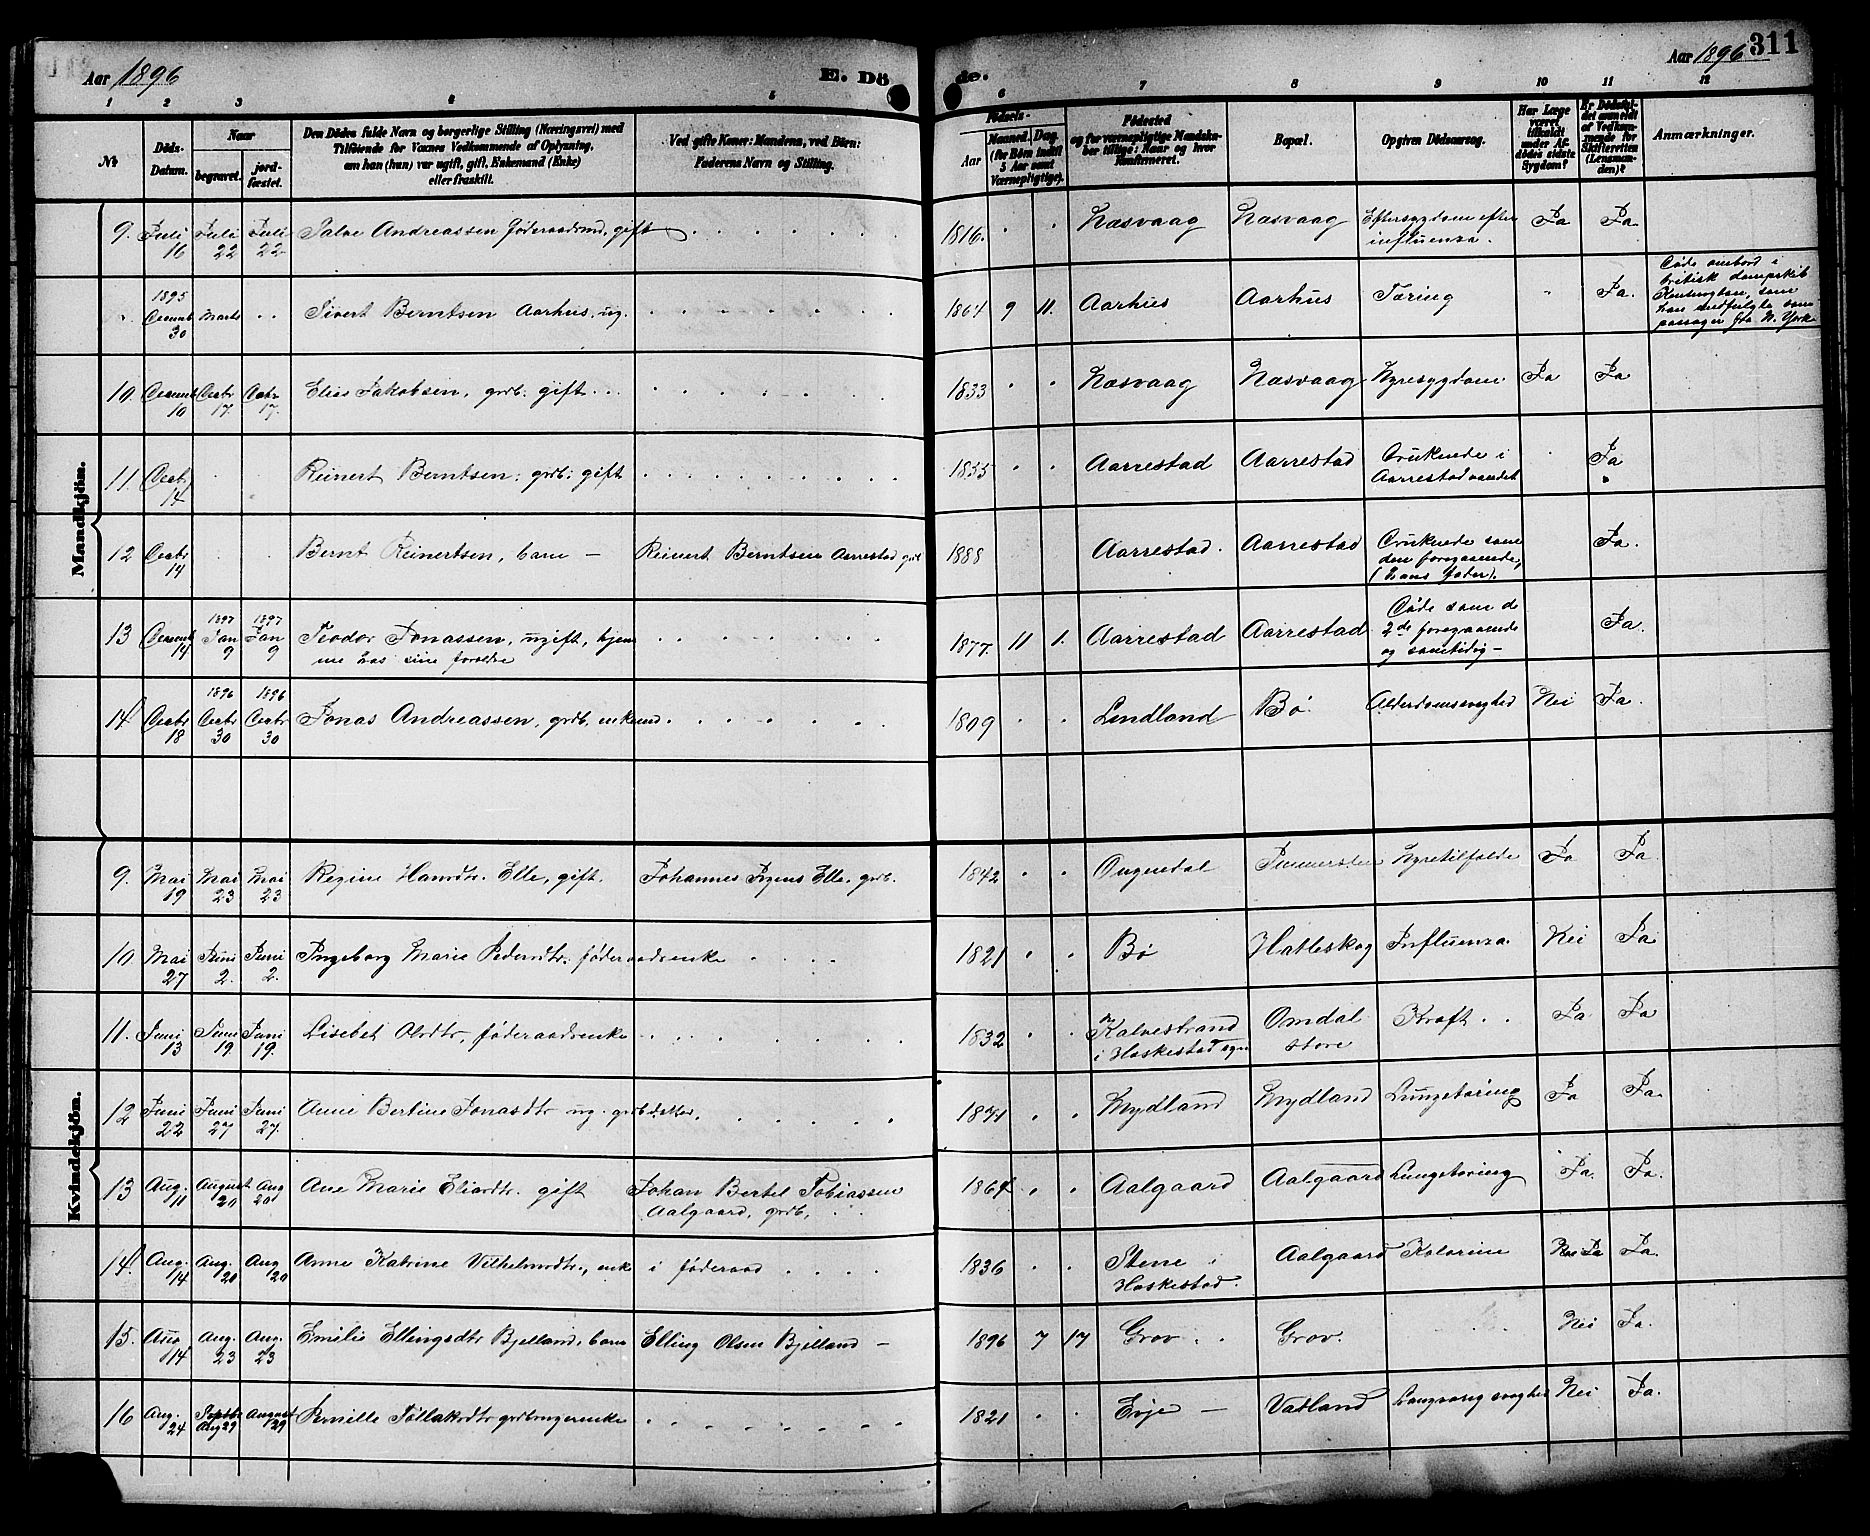 Aar 1896
E. Dö
de.
Aar 1896 311
1 2 3 4 5 6 7 8 9 10 11 12
№
Döds-
Datum.
Naar
begravet.
jord-
fæstet.
Den Dödes fulde Navn og borgerlige Stilling (Næringsvei) med
Tilföiende for Voxnes Vedkommende af Oplysning,
om han (hun) var ugift, gift, Enkemand (Enke)
eller fraskilt.
Ved gifte Koner: Mandens, ved Börn:
Faderens Navn og Stilling.
Födsels-
Aar
Maaned. Dag.
(for Börn indtil
5 Aar samt
Værnepligtige).
Födested
og for værnepligtige Mandskaber
tillige: Naar og hvor
konfirmeret.
Bopæl.
Opgiven Dödsaarsag.
Har Læge
været
tilkaldt
under Af-
dödes sidste
Sygdom?
Er Dödsfal-
det anmeldt
af Vedkom-
mende for
Skifteretten
(Lensman-
den)?
Anmærkninger.
Mandkjön.
9. Juli 16 Juli 22 Juli 22 Salve Andreassen föderaadsmd, gift 1816. Næsvaag Næsvaag Eftersygdom efter influenza. Ja Ja.
1895 Decemb 30 Marts Sivert Berntsen Aarhus, ug. 1864 9 11. Aarhus Aarhus Tæring Ja. Döde ombord i britisk dampskib Kensington, som han medfulgte som passager fra N. York
10. Decemb 10 Decbr 17. Decbr 17. Elias Jakobsen, grdb. gift 1833 Næsvaag Næsvaag Nyresygdom Ja Ja
11. Decbr 14 Reinert Berntsen, grdb. gift 1855 Aarrestad Aarrestad Druknede i Aarrestadvandet Ja
12 Decbr 14 Bernt Reinertsen, barn – Reinert Berntsen Aarrestad grdb 1888 Aarrestad. Aarrestad Druknede som den foregaaende, (hans fader). Ja.
13 Decemb 14 1897 Jan 9 1897 Jan 9 Teodor Jonassen, ugift, hjemme hos sine forældre 1877. 11 1. Aarrestad Aarrestad Döde som de 2de foregaaende og samtidig – Ja.
14 Decbr 18 1896 Decbr 30 1896 Decbr 30 Jonas Andreassen, grdb. enkemd. 1809 Lindland Bø. Alderdomssvaghed Nei Ja.
Kvindekjön.
9. Mai 19 Mai 23 Mai 23 Regine Hansdtr. Elle, gift. Johannes Jörgens Elle, grdb. 1842 Ougendal Nyretilfælde Ja Ja.
10. Mai 27 Juni 2. Juni 2. Ingeborg Marie Pedersdtr. föderaadsenke 1821 Bø Hatleskog Influenza. Nei Ja
11. Juni 13 Juni 19. Juni 19. Lisebet Olsdtr, föderaadsenke 1832 Kalvestrand i Heskestad sogn Omdal store Kræft Ja Ja
12 Juni 22 Juni 27 Juni 27. Anne Bertine Jonasdtr ug. grdb. 1871 Mydland Mydland Lungetæring Ja Ja.
13 Aug. 11 August 20 Aug 20 Ane Marie Eliasdtr. gift Johan Bertel Tobiassen Aalgaard, grdb. 1864 Aalgaard Aalgaard Lungetæring Ja. Ja.
14. Aug. 14 Aug. 20 Aug 20 Anne Katrine Vilhelmsdtr., enke i föderaad 1836 Stene i Heskestad. Aalgaard Kolerine Nei Ja Ja.
15. Aug 14 Aug. 23 Aug. 23 Emilie Ellingsdtr Bjelland, barn Elling Olsen Bjelland – 1896 7 17 Grov Grov. Nei Ja.
16 Aug. 24 Aug 29 August 29 Pernille Tollaksdtr grdbrugerenke 1821 Evje – Vatland Langvarig svaghed Nei Ja.